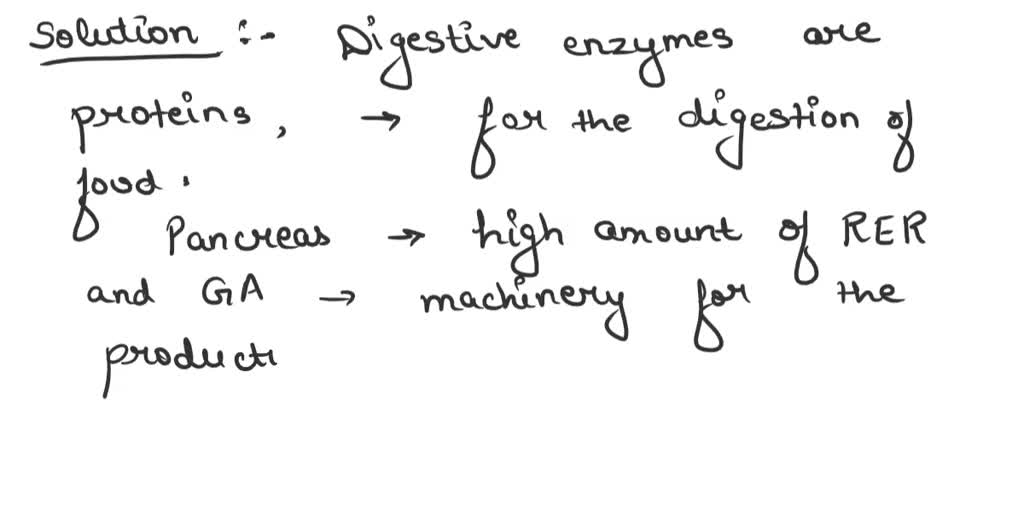 Solution :- Digestive enzymes are
proteins, → for the digestion of
food.
Pancreas → high amount of RER
and GA → machinery for the
producti